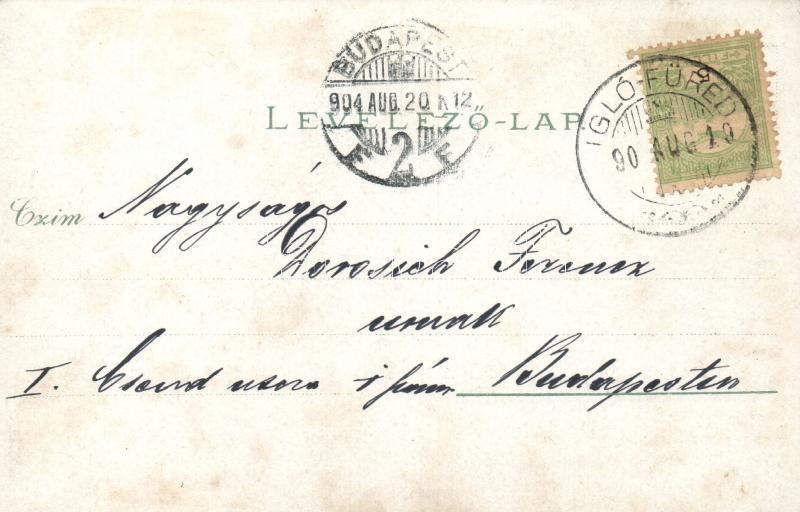 BUDAPEST
904 AUG. 20. K12
2
IGLÓ-FÜRED
90 AUG 19
LEVELEZŐ-LAP
Czim Nagyságos
Dorosich Ferencz
urnak
I. Csend utcza 1 szám Budapesten